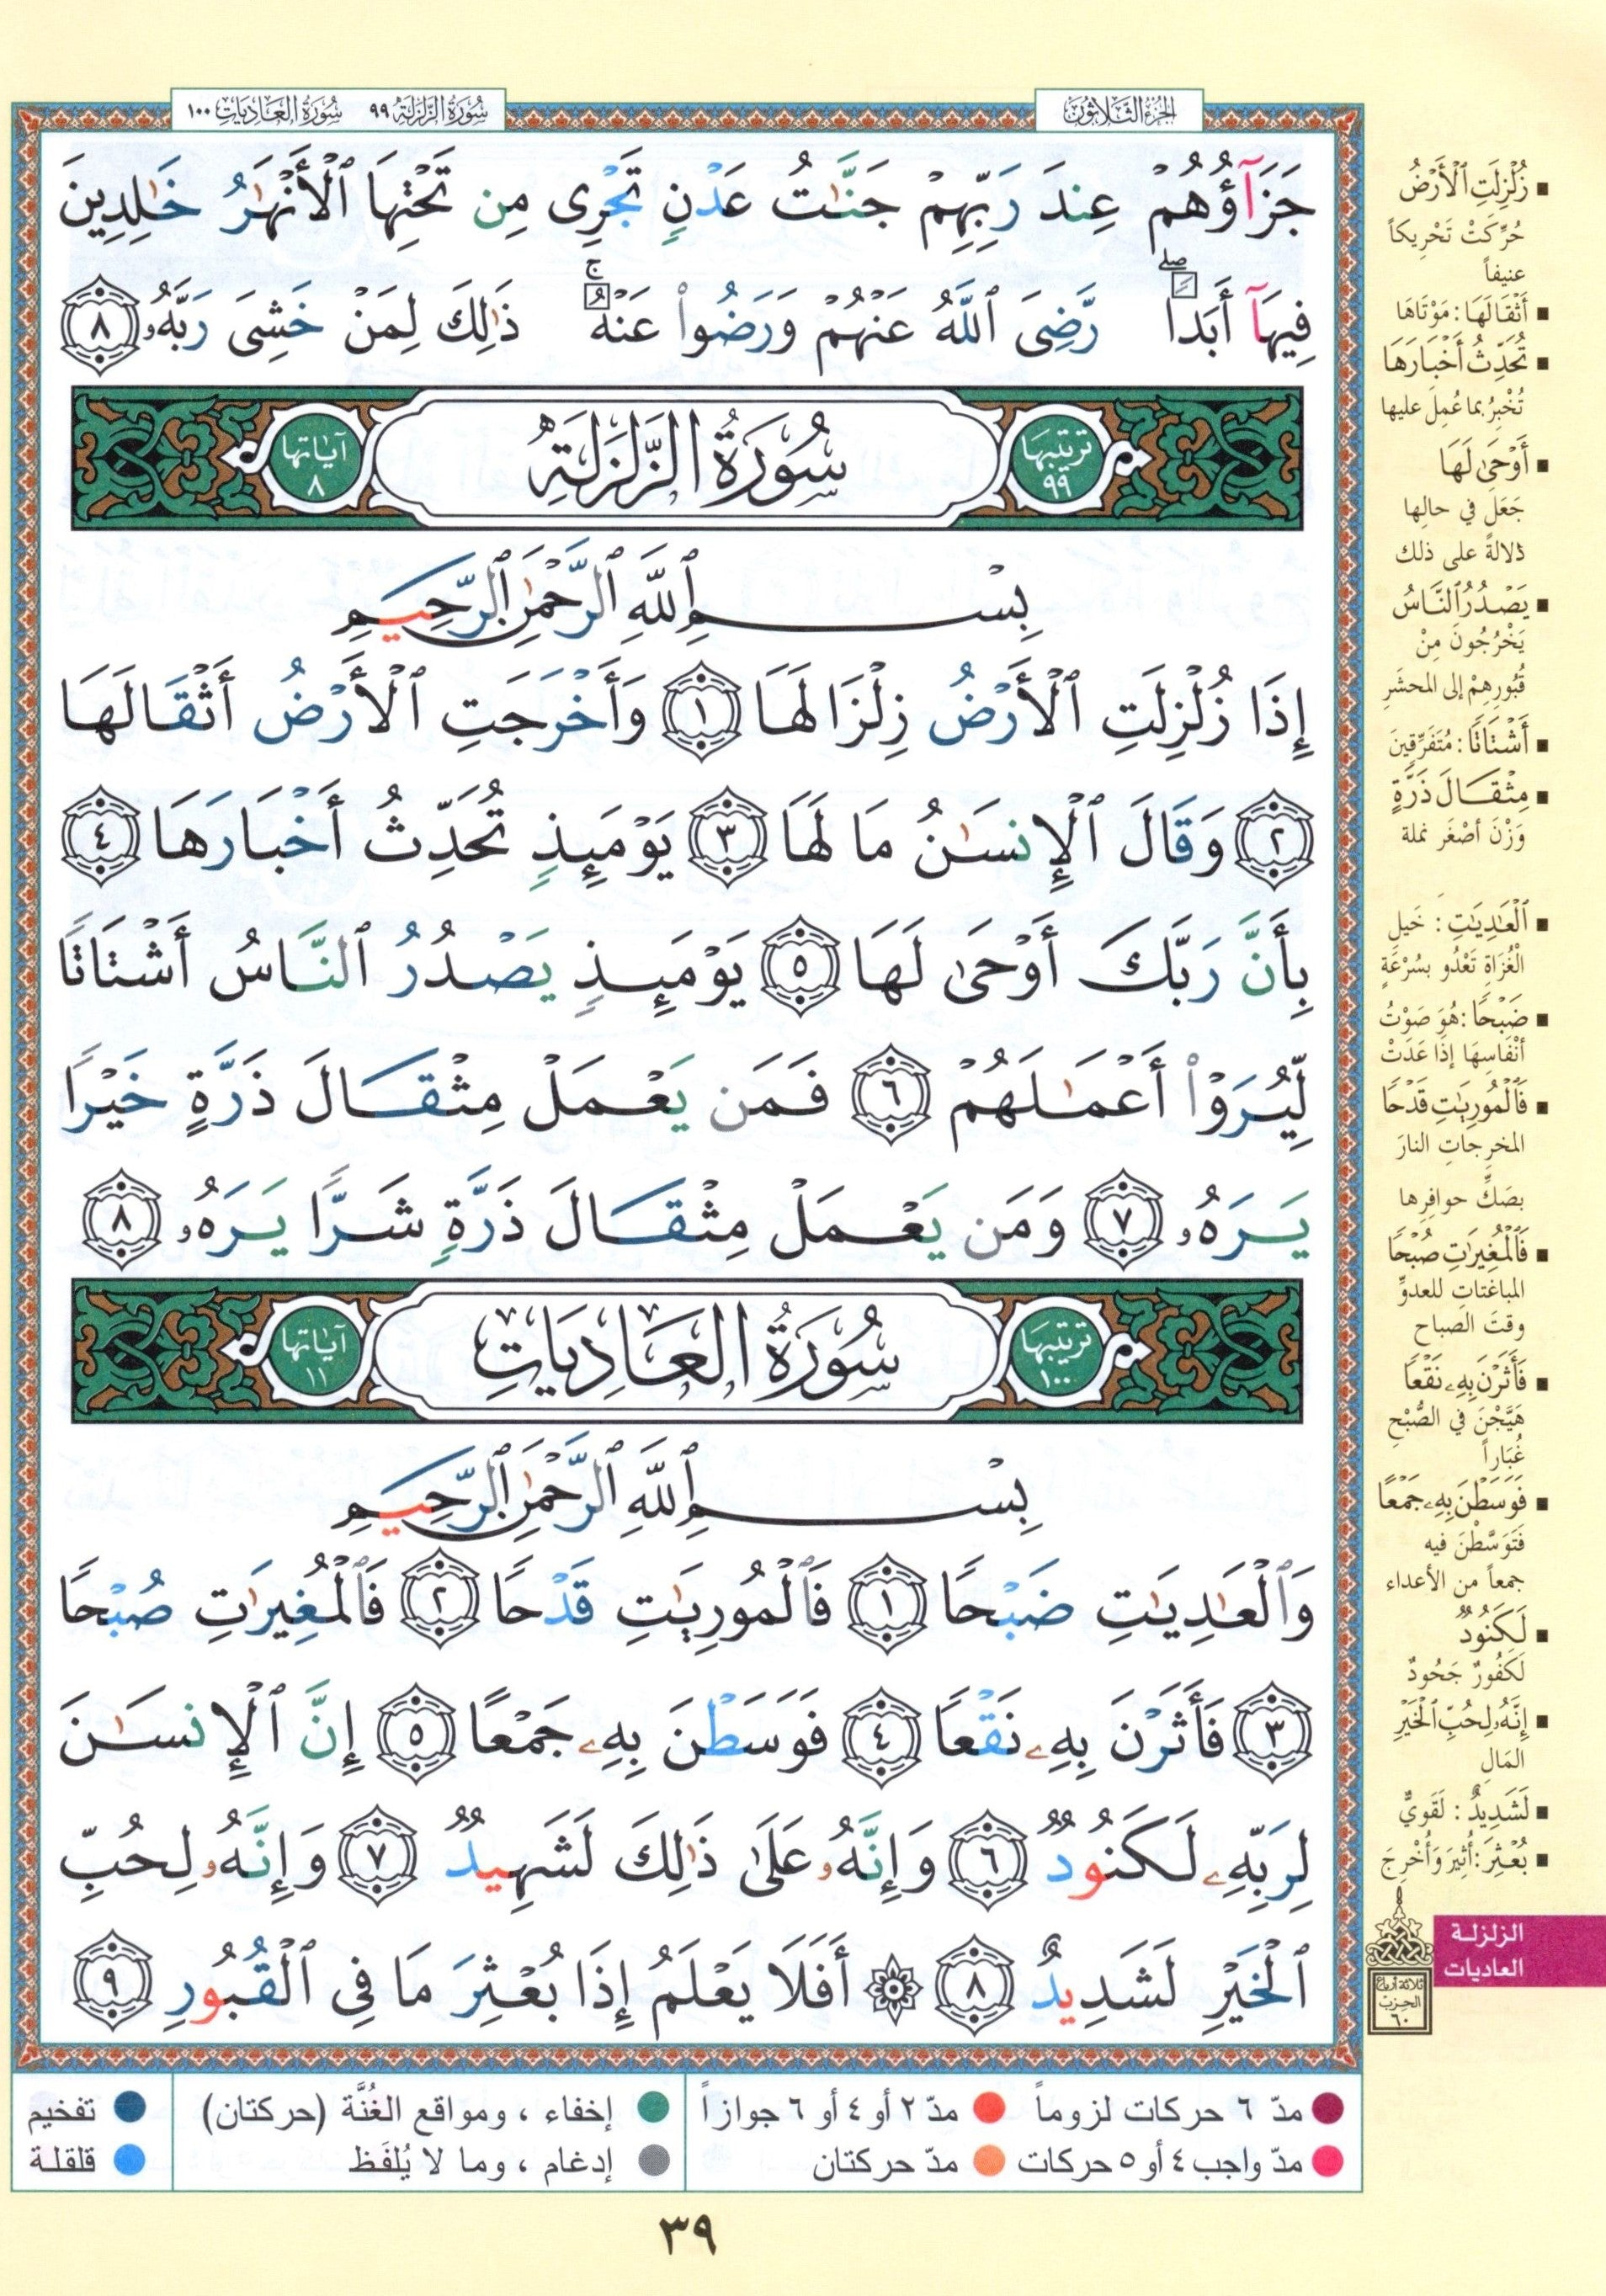 الجزء الثلاثون
سورة الزلزلة ٩٩ سورة العاديات ١٠٠
جَزَآؤُهُمْ عِندَ رَبِّهِمْ جَنَّـٰتُ عَدْنٍ تَجْرِى مِن تَحْتِهَا ٱلْأَنْهَـٰرُ خَـٰلِدِينَ
فِيهَآ أَبَدًا ۖ رَّضِىَ ٱللَّهُ عَنْهُمْ وَرَضُوا۟ عَنْهُ ۚ ذَٰلِكَ لِمَنْ خَشِىَ رَبَّهُۥ ٨
ترتيبها ٩٩ سُورَةُ الزَّلْزَلَةِ آياتها ٨
بِسْمِ ٱللَّهِ ٱلرَّحْمَـٰنِ ٱلرَّحِيمِ
إِذَا زُلْزِلَتِ ٱلْأَرْضُ زِلْزَالَهَا ١ وَأَخْرَجَتِ ٱلْأَرْضُ أَثْقَالَهَا
٢ وَقَالَ ٱلْإِنسَـٰنُ مَا لَهَا ٣ يَوْمَئِذٍ تُحَدِّثُ أَخْبَارَهَا ٤
بِأَنَّ رَبَّكَ أَوْحَىٰ لَهَا ٥ يَوْمَئِذٍ يَصْدُرُ ٱلنَّاسُ أَشْتَاتًا
لِّيُرَوْا۟ أَعْمَـٰلَهُمْ ٦ فَمَن يَعْمَلْ مِثْقَالَ ذَرَّةٍ خَيْرًا
يَرَهُۥ ٧ وَمَن يَعْمَلْ مِثْقَالَ ذَرَّةٍ شَرًّا يَرَهُۥ ٨
ترتيبها ١٠٠ سُورَةُ العَادِيَاتِ آياتها ١١
بِسْمِ ٱللَّهِ ٱلرَّحْمَـٰنِ ٱلرَّحِيمِ
وَٱلْعَـٰدِيَـٰتِ ضَبْحًا ١ فَٱلْمُورِيَـٰتِ قَدْحًا ٢ فَٱلْمُغِيرَٰتِ صُبْحًا
٣ فَأَثَرْنَ بِهِۦ نَقْعًا ٤ فَوَسَطْنَ بِهِۦ جَمْعًا ٥ إِنَّ ٱلْإِنسَـٰنَ
لِرَبِّهِۦ لَكَنُودٌ ٦ وَإِنَّهُۥ عَلَىٰ ذَٰلِكَ لَشَهِيدٌ ٧ وَإِنَّهُۥ لِحُبِّ
ٱلْخَيْرِ لَشَدِيدٌ ٨ ۞ أَفَلَا يَعْلَمُ إِذَا بُعْثِرَ مَا فِى ٱلْقُبُورِ ٩
▪ زُلْزِلَتِ ٱلْأَرْضُ
حُرِّكَتْ تَحْرِيكاً
عنيفاً
▪ أَثْقَالَهَا : مَوْتَاهَا
▪ تُحَدِّثُ أَخْبَارَهَا
تُخْبِرُ بما عُمِلَ عليها
▪ أَوْحَىٰ لَهَا
جَعَلَ في حالِها
دلالةً على ذلك
▪ يَصْدُرُ ٱلنَّاسُ
يَخْرُجُونَ مِنْ
قُبُورِهِمْ إلى المحشَرِ
▪ أَشْتَاتًا : مُتَفَرِّقِينَ
▪ مِثْقَالَ ذَرَّةٍ
وَزْنَ أصْغَر نملة
▪ ٱلْعَـٰدِيَـٰتِ : خَيل
الْغُزَاةِ تَعْدُو بسُرْعَةٍ
▪ ضَبْحًا : هُوَ صَوْتُ
أنْفَاسِهَا إذَا عَدَتْ
▪ فَٱلْمُورِيَـٰتِ قَدْحًا
المخرِجاتِ النارَ
بصَكِّ حوافِرِها
▪ فَٱلْمُغِيرَٰتِ صُبْحًا
المباغتاتِ للعدوِّ
وقتَ الصباح
▪ فَأَثَرْنَ بِهِۦ نَقْعًا
هَيَّجْنَ في الصُّبْحِ
غُبَاراً
▪ فَوَسَطْنَ بِهِۦ جَمْعًا
فَتَوَسَّطْنَ فيه
جمعاً من الأعداء
▪ لَكَنُودٌ
لَكَفُورٌ جَحُودٌ
▪ إِنَّهُۥ لِحُبِّ ٱلْخَيْرِ
المَالِ
▪ لَشَدِيدٌ : لَقَوِيٌّ
▪ بُعْثِرَ : أُثِيرَ وَأُخْرِجَ
الزلزلة
العاديات
ثلاثة أرباع
الحزب
٦٠
مدّ ٦ حركات لزوماً مدّ ٢ أو ٤ أو ٦ جوازاً إخفاء ، ومواقع الغُنَّة (حركتان) تفخيم
مدّ واجب ٤ أو ٥ حركات مدّ حركتان إدغام ، وما لا يُلفَظ قلقلة
٣٩